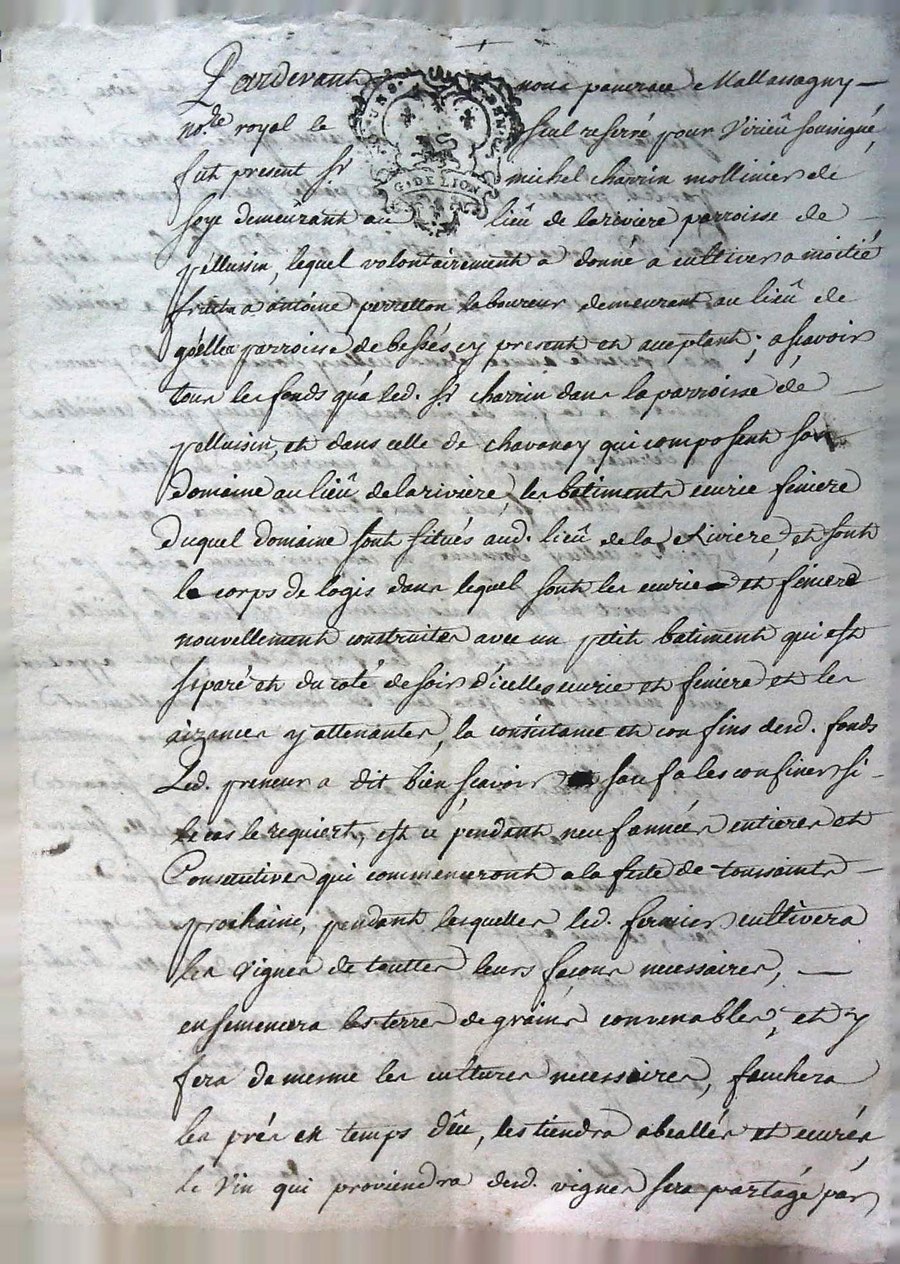 Pardevant nous pancrace Mallassagny
no.re royal le seul reservé pour Virieû soussigné,
fut present Sr michel charrin mollinier de
soye demeurant au lieû de la riviere parroisse de
pélluisin, lequel volontairement a donné a cultiver a moitié
fruits a antoine perrellon laboureur demeurant au lieû de
goéllee parroisse de bessés, cy present et acceptant; a sçavoir
tous les fonds qu'a led. Sr charrin dans la parroise de
pelluisin, et dans celle de chavanay qui composent son
domaine au lieû de la riviére, les batiments eurie feniere
duquel domaine sont situés aud. lieû de la Riviere, et sont
le corps de logis dans lequel sont les eurie et feniere
nouvellement construites avec un petit batiment qui est
separé et du coté de soir d'icelles eurie et feniere et les
aizances y attenantes, la consistance et confins desd. fonds
Led. preneur a dit bien sçavoir sauf a les confiner si
le cas le requiert, est ce pendant neuf années entieres et
Consecutives qui commenceront a la fete de toussaints
prochaine, pendant lesquelles led. fermier cultivera
les vignes de touttes leurs façons necessaires,
ensemencera les terres de grains convenables, et y
fera de meme les cultures necessaires, fauchera
les prés en temps dêu, les tiendra abeallés et eurés,
le vin qui proviendra desd. vignes sera partagé par
G. DE LION